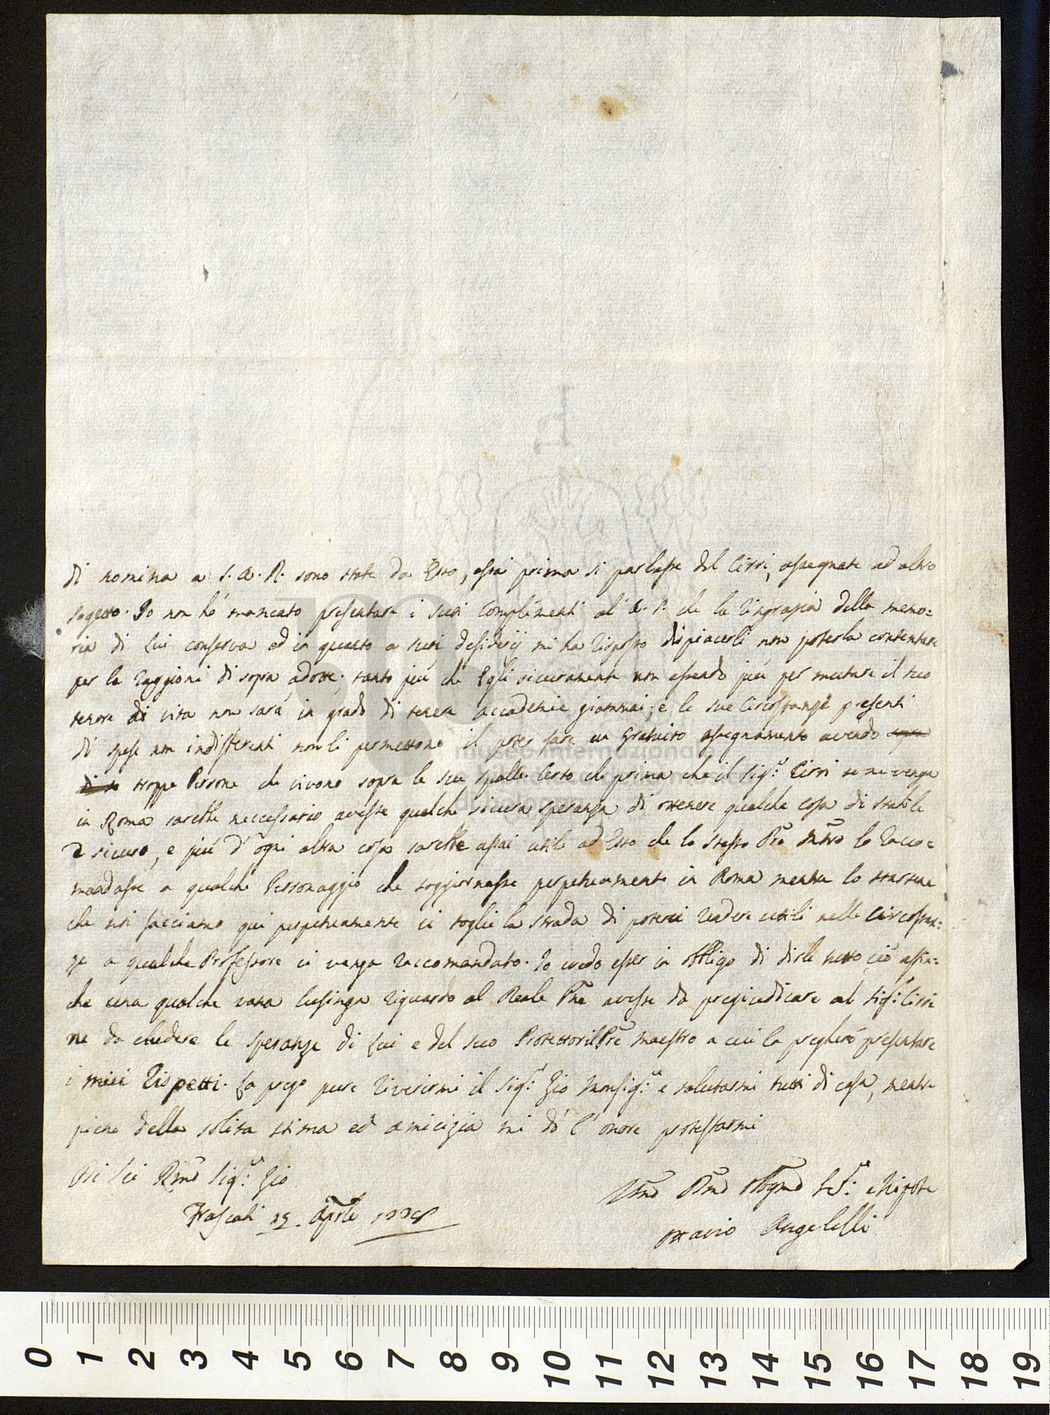 di nomina a S. A. R. sono state da Esso, assai prima si parlasse del Cirri, assegnate ad altro
sogetto. Io non hó mancato presentare i suoi complimenti al A. S. che la ringrazia della memo=
ria di Lui conserva ed in quanto a suoi desiderij mi ha risposto dispiacerli non poterla contentare
per le raggioni di sopra adotte. tanto piú che Egli sicuramente non essendo piú per mutare il suo
tenore di vita non sará in grado di tenere accademie giammai; e le sue circostanze presenti
di spese non indifferenti non li permettono il poter fare un Gratuito assegnamento avendo
troppe Persone che vivono sopra le sue spalle. Certo che prima che il Sig.r Cirri se ne venga
in Roma sarebbe neccessario avesse qualche sicura speranza di ottenere qualche cosa di stabile
e sicuro, e piú d'ogni altra cosa sarebbe assai utile ad Esso che lo stesso Pre Mtro lo racco=
mandasse a qualche Personaggio che soggiornasse perpetuamente in Roma mentre lo starsene
che noi facciamo qui perpetuamente ci toglie la strada di poterci rendere utili nelle circostan=
ze a qualche Professore ci venga raccomandato. Io credo esser in obbligo di dirle tutto ció affin=
che una qualche vana lusinga riguardo al Reale Pne avesse da pregiudicare al Sig.r Cirri
ne da eludere le speranze di Lui e del suo Protettore il Pre Maestro a cui la pregheró presentare
i miei rispetti. La prego pure riverirmi il Sig.r Zio Monsig.r e salutarmi tutti di casa, mentre
pieno della solita stima ed amicizia mi dó l'onore protestarmi
Di Lei Rmo Sig.r Zio
Frascati 15. Aprle 1778
Umo Dmo Obgmo Se.re e Nipote
Ottavio Angelelli
museo internazionale
0 1 2 3 4 5 6 7 8 9 10 11 12 13 14 15 16 17 18 19